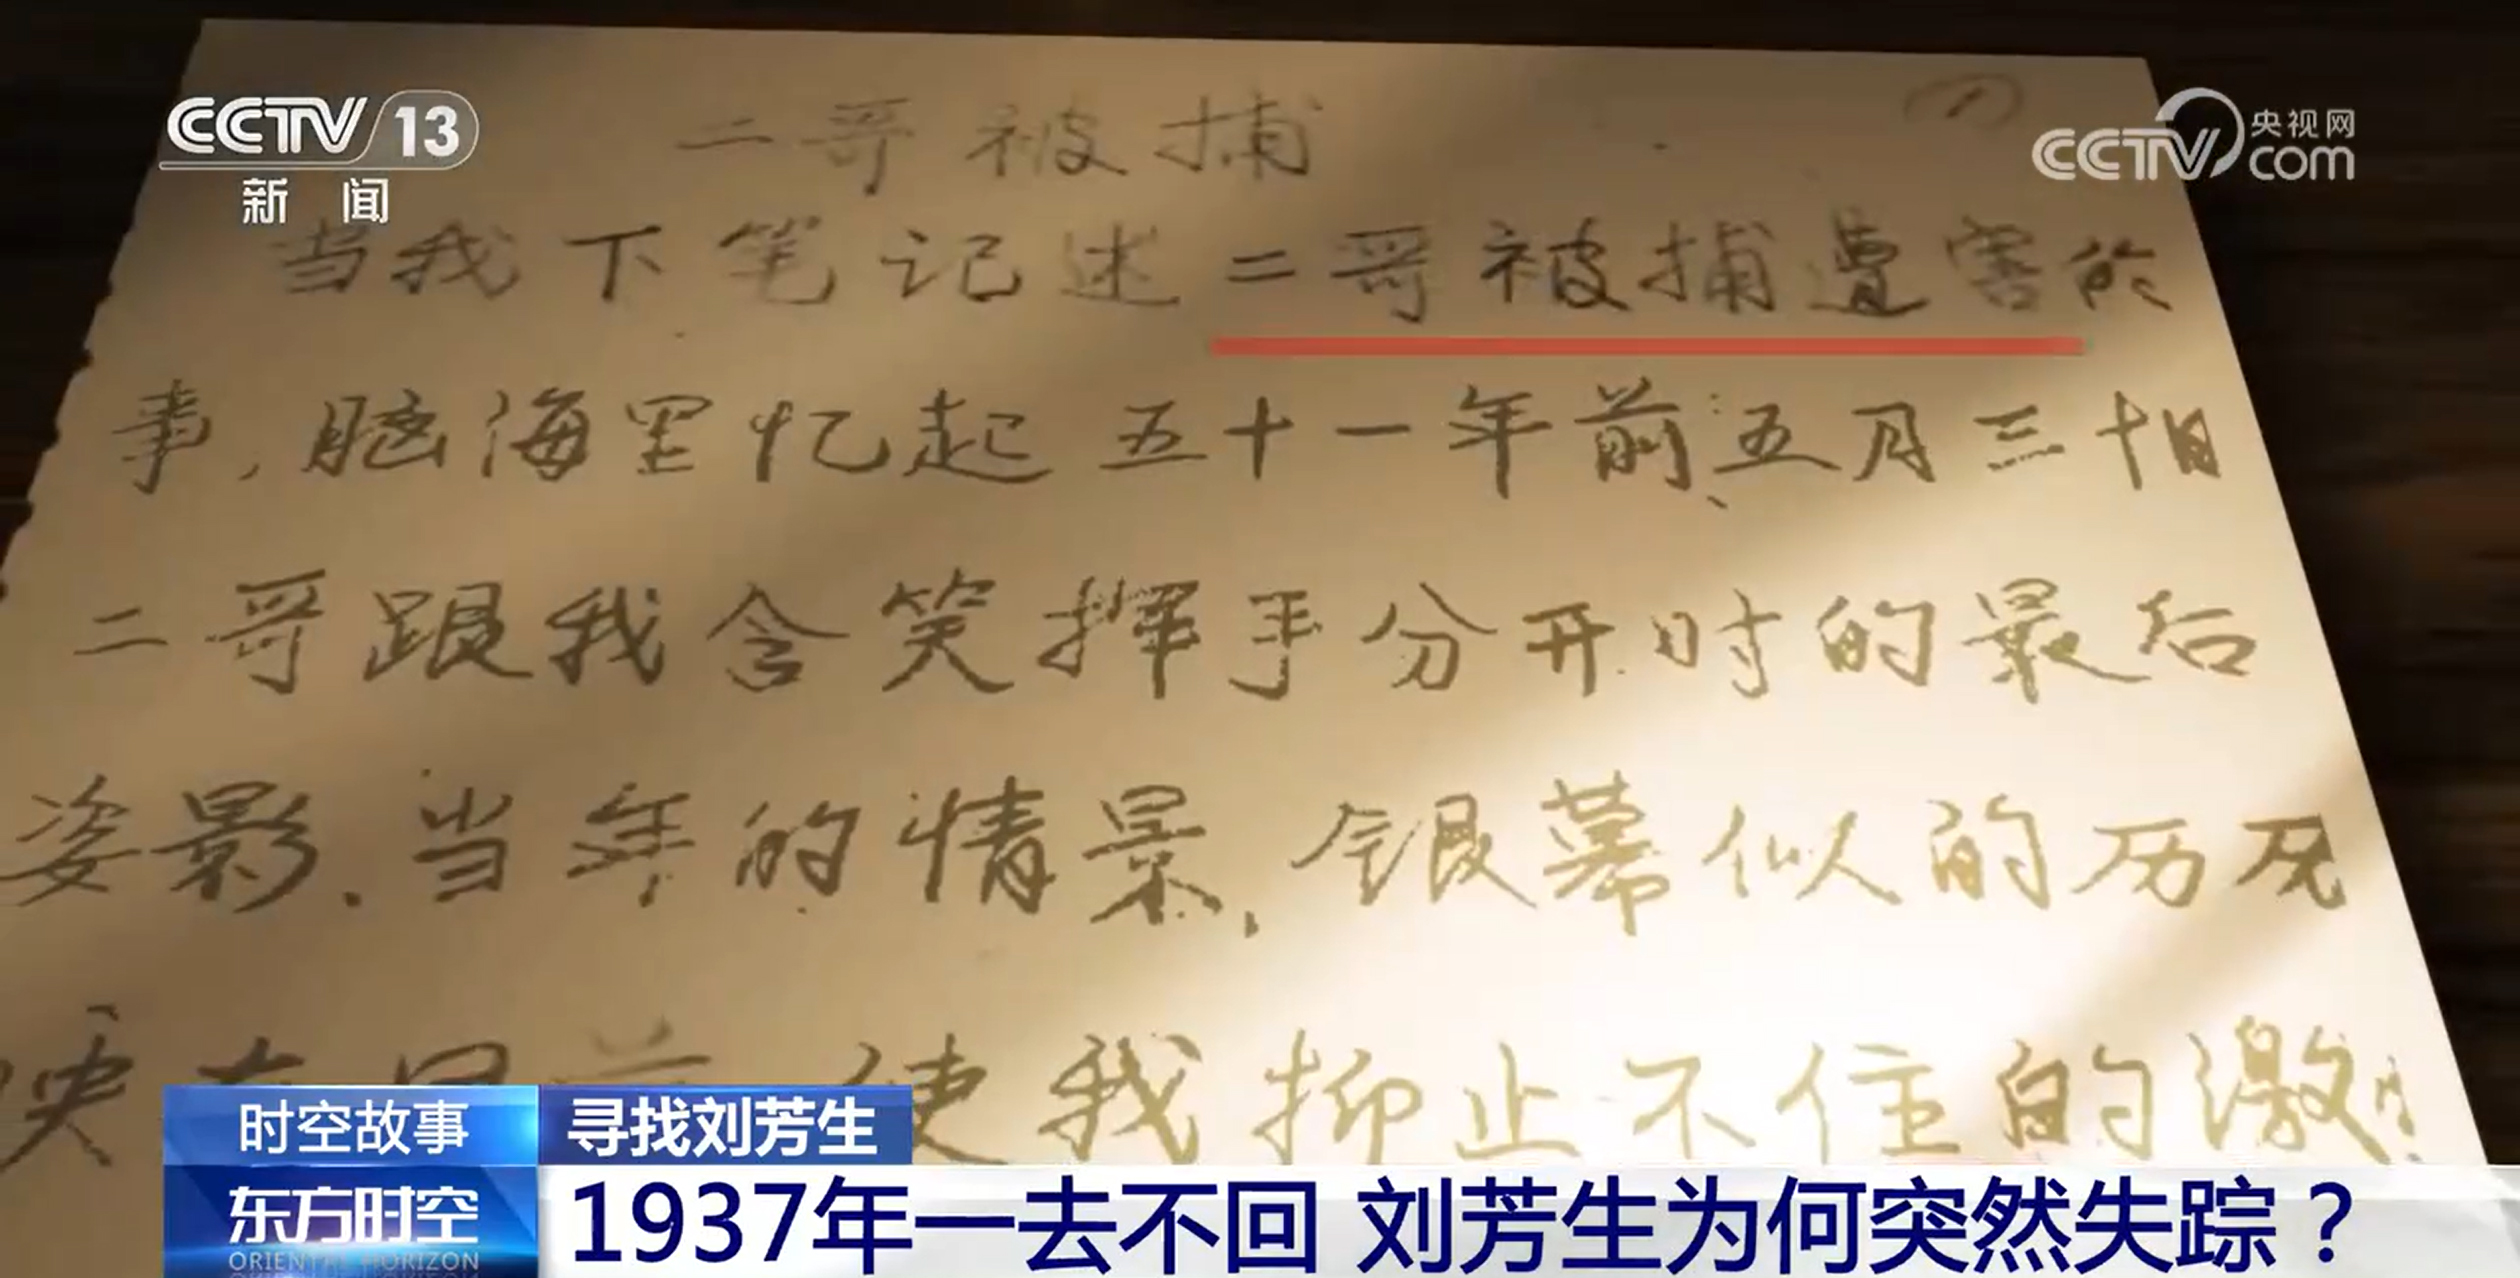 CCTV 13
新闻
央视网
CCTV com
二哥被捕
当我下笔记述二哥被捕遭害的
事,脑海里忆起五十一年前、五月三十日
二哥跟我含笑挥手分开时的最后
姿影.当年的情景,银幕似的历历
映在目前 使我抑止不住的激
时空故事
寻找刘芳生
东方时空
ORIENTAL HORIZON
1937年一去不回 刘芳生为何突然失踪?